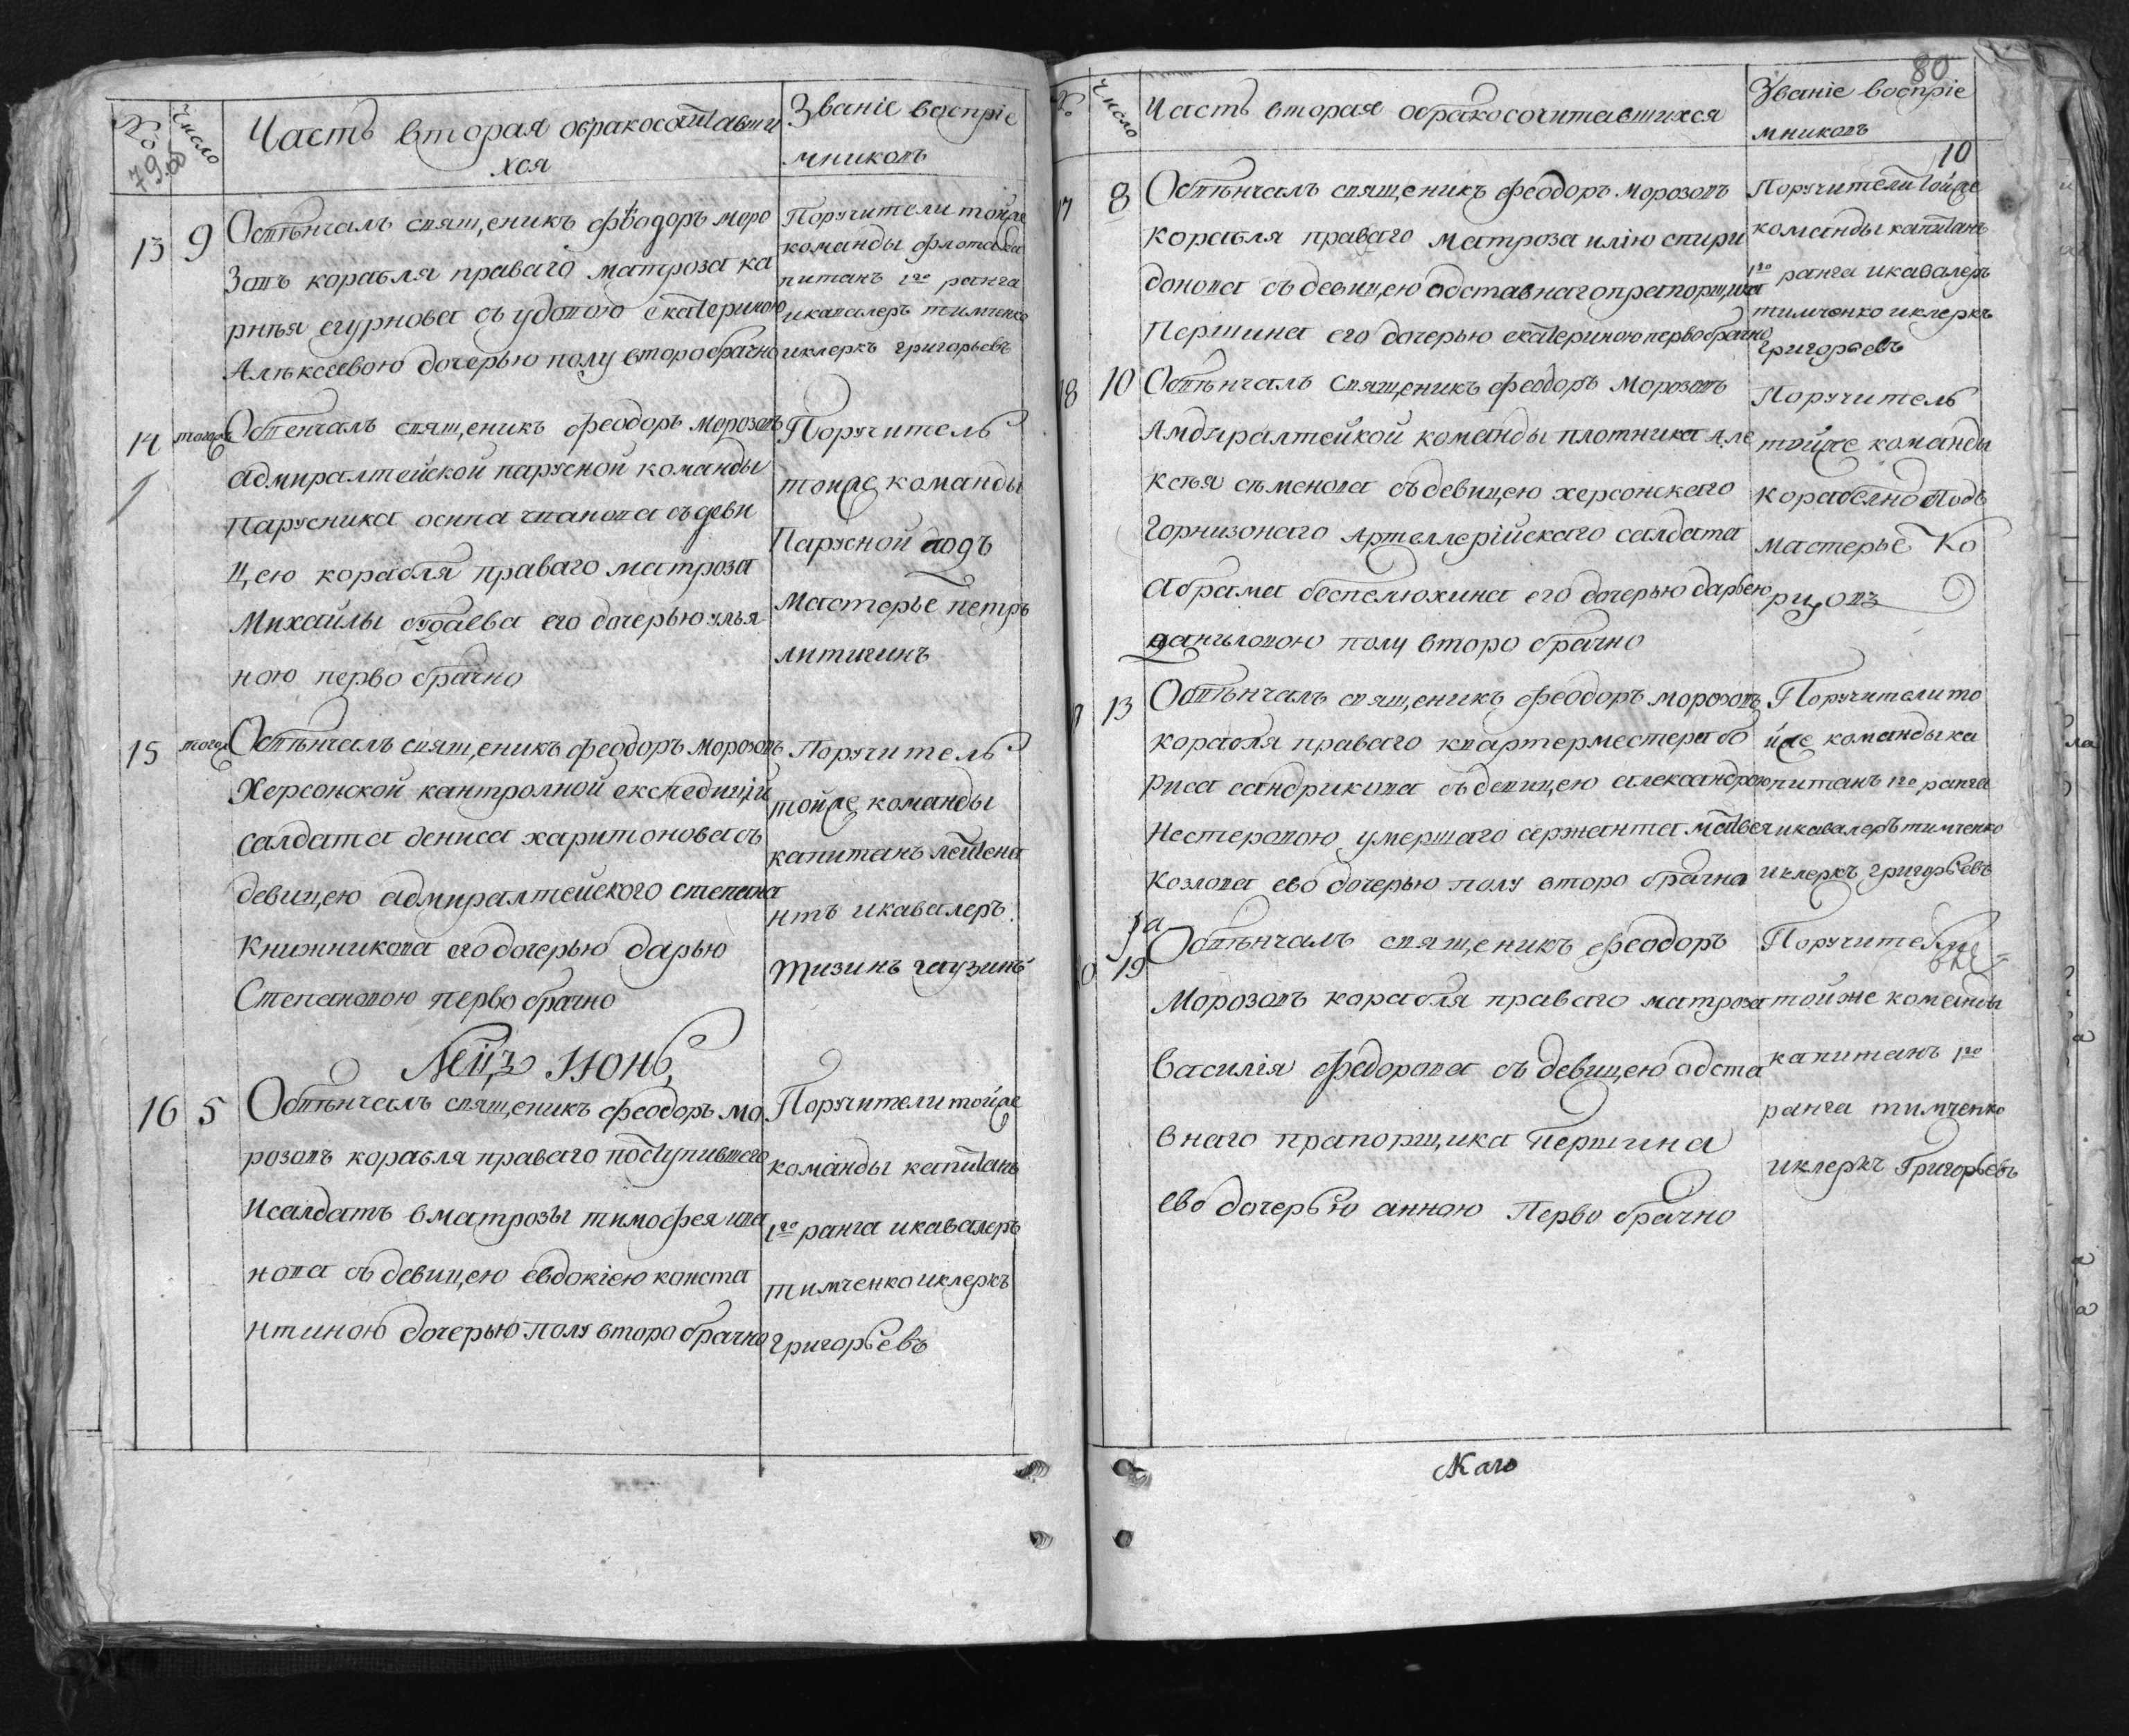 № Число Часть вторая обракосочитавши
хся
Званіе воспріе
мниковъ
79 об
13 9 Обвѣнчалъ священикъ феодоръ моро
зовъ корабля праваго матроза ка
рнѣя егурнова съ удовою екатериною
Алѣксеевою дочерью полу второбрачно
Поручители тойже
команды флота ка
питанъ 1го ранга
икавалеръ тимченко
иклеркъ григорьевъ
14 тогожъ Обвенчалъ священикъ феодоръ морозовъ
адмиралтейской парусной команды
парусника осипа иванова съ деви
цею корабля праваго матроза
Михайлы его дочерью улья
ною перво брачно
Поручитель
тойже команды
Парусной подъ
мастерье петръ
литигинъ
15 тогож Обвѣнчалъ священикъ феодоръ морозовъ
Херсонской кантролной експедиціи
салдата дениса харитонова съ
девицею адмиралтейского степана
книжникова его дочерью дарью
Степановою перво брачно
Поручитель
тойже команды
капитанъ лейтена
нтъ икавалеръ
Мцъ Июнь
16 5 Обвѣнчалъ священикъ феодоръ мо
розовъ корабля праваго поступившего
исалдатъ вматрозы тимофея ива
нова съ девицею евдокіею конста
нтиною дочерью полу второ брачно
Поручители тойже
команды капитанъ
1го ранга икавалеръ
тимченко иклеркъ
Григорьевъ
80
№ Число Часть вторая обракосочитавшихся
Званіе воспріе
мниковъ
10
17 8 Обвѣнчалъ священикъ феодоръ морозовъ
корабля праваго матроза илію спири
донова съ девицею одставнаго прапорщика
Першина его дочерью екатериною первобрачно
Поручители тойже
команды капитанъ
1го ранга икавалеръ
тимченко иклеркъ
григорьевъ
18 10 Обвѣнчалъ священикъ феодоръ морозовъ
Амдиралтейской команды плотника Але
ксѣя сѣменова съ девицею херсонскаго
Горнизонаго Артеллерійскаго салдата
Абрама беспелюхина его дочерью дарьею
даниловою полу второ брачно
Поручитель
тойже команды
корабелно подъ
мастерье Ко
рицовъ
13 Обвѣнчалъ священикъ феодоръ морозовъ
корабля праваго квартерместера бо
риса сандрикова съ девицею александрою
Нестеровою умершаго сержанта матвея
козлова ево дочерью полу второ брачна
Поручители то
йже команды ка
питанъ 1го ранга
икавалеръ тимченко
иклеркъ григорьевъ
19 Обвѣнчалъ священикъ феодоръ
Морозовъ корабля праваго матроза
Василія федорова съ девицею одста
внаго прапорщика Першина
ево дочерью анною Перво брачно
Поручители
тойже команды
капитанъ 1го
ранга тимченко
иклеркъ Григорьевъ